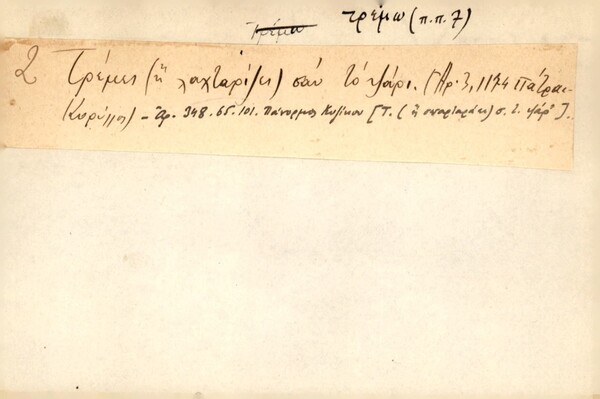 τρέμω τρέμω (π.π. 7)
2 Τρέμει (ἢ λαχταρίζει) σαν το ψάρι. (Αρ. 3, 1174 Πάτραι-
Κορύλλος) - Αρ. 348. 65. 101. Πάνορμος Κυζίκου [Τ. ( ἢ σπαρταράει) σ. τ. ψάρ' ].